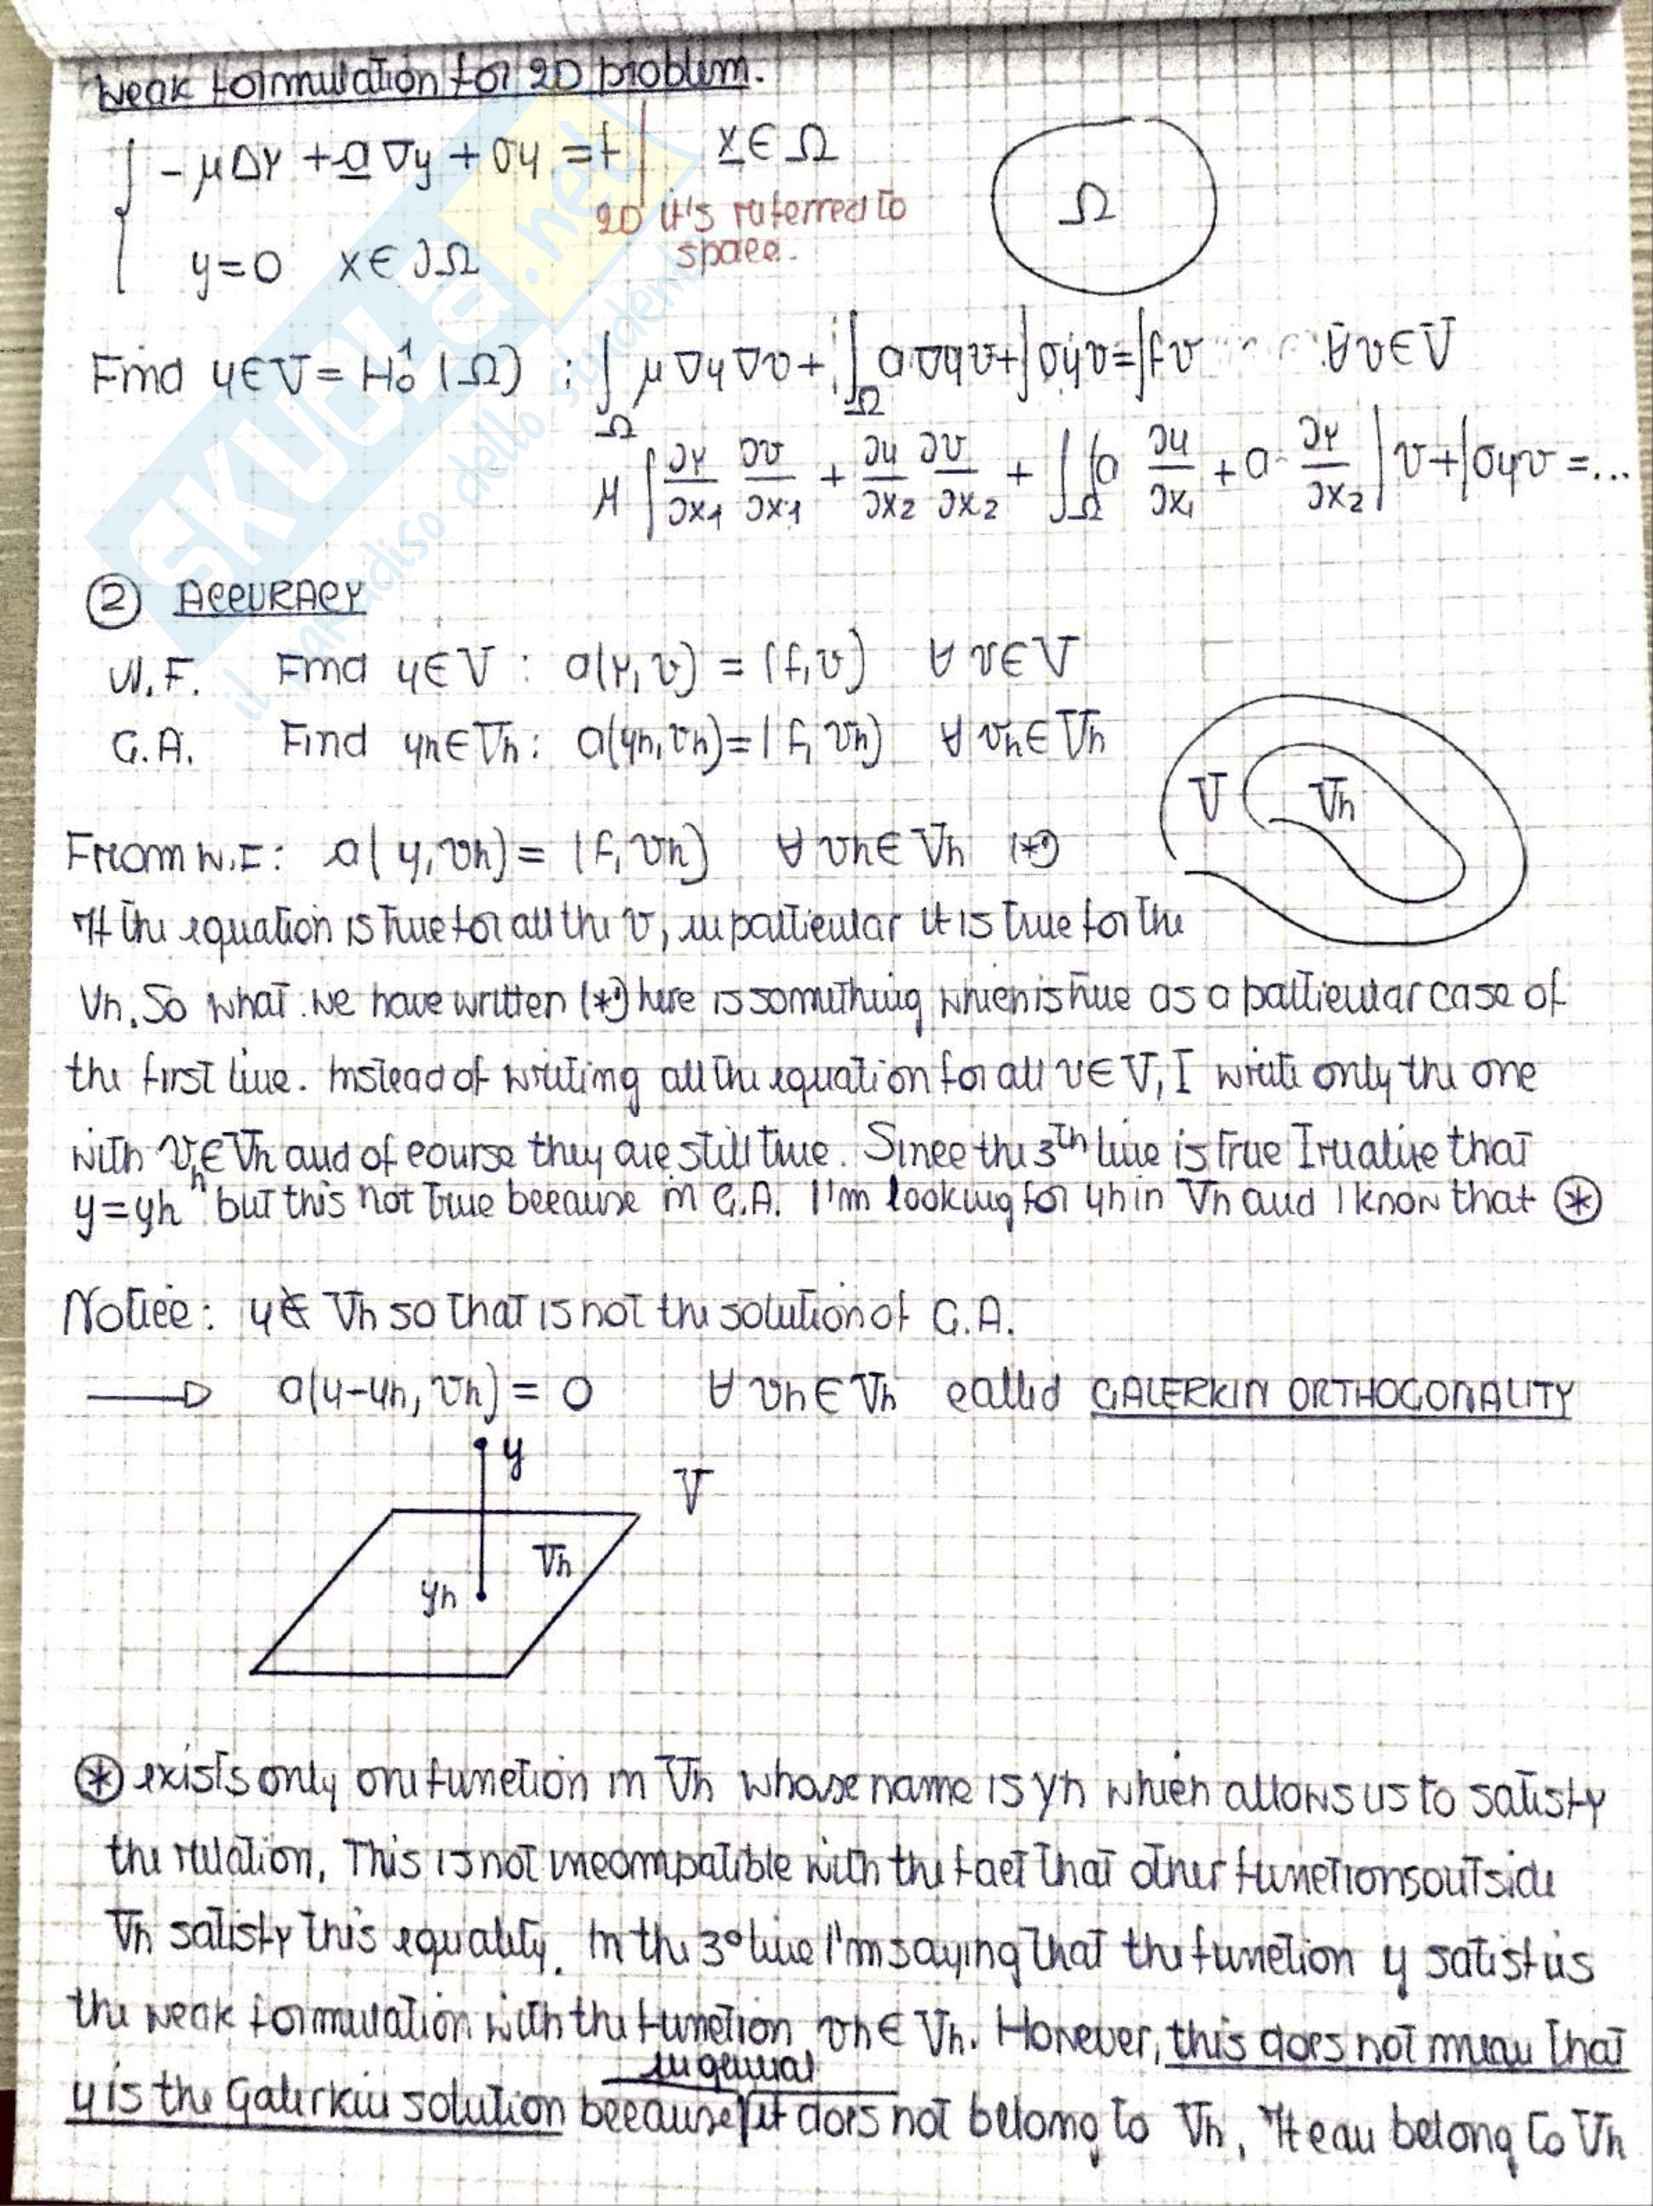 Weak formulation for 2D problem.
{ -μΔy + a ∇y + σy = f x ∈ Ω
2D it's referred to
space.
Ω
y=0 x ∈ ∂Ω
Find y∈V = H¹₀ (Ω) : ∫_Ω μ∇y∇v + ∫_Ω a∇yv + ∫σyv = ∫fv ∀v∈V
μ ∫ ∂y/∂x₁ ∂v/∂x₁ + ∂y/∂x₂ ∂v/∂x₂ + ∫_Ω (a ∂y/∂x₁ + a ∂y/∂x₂) v + ∫σyv = ...
② ACCURACY
W.F. Find y∈V : a(y,v) = (f,v) ∀ v∈V
G.A. Find yh∈Vh : a(yh,vh) = (f,vh) ∀ vh∈Vh
V Vh
From W.F: a(y,vh) = (f,vh) ∀ vh∈Vh (*)
If the equation is true for all the v, in particular it is true for the
vh. So what we have written (*) here is something which is true as a particular case of
the first line. Instead of writing all the equation for all v∈V, I write only the one
with vh∈Vh and of course they are still true. Since the 3th line is true I realize that
y=yh but this not true because in G.A. I'm looking for yh in Vh and I know that ⊛
Notice: y∉ Vh so that is not the solution of G.A.
→ a(y-yh, vh) = 0 ∀ vh∈Vh called GALERKIN ORTHOGONALITY
y
V
Vh
yh
⊛ exists only one function in Vh whose name is yh which allows us to satisfy
the relation. This is not incompatible with the fact that other functions outside
Vh satisfy this equality. In the 3° line I'm saying that the function y satisfies
the weak formulation with the function vh∈ Vh. However, this does not mean that
in general
y is the Galerkin solution because it does not belong to Vh. It can belong to Vh
SKUOLA.net
il paradiso dello studente